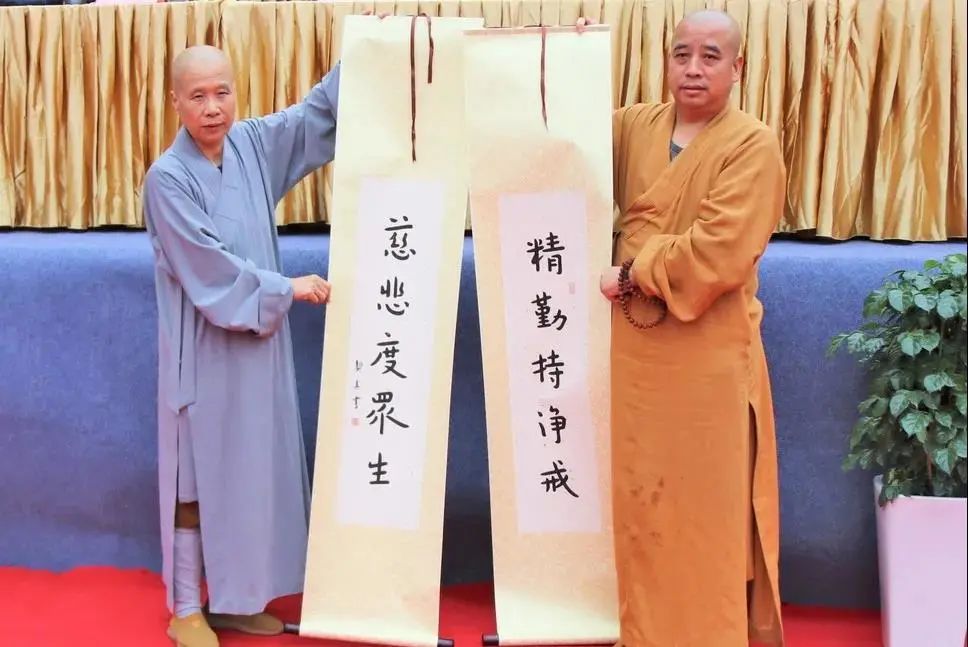 精勤持净戒
慈悲度眾生